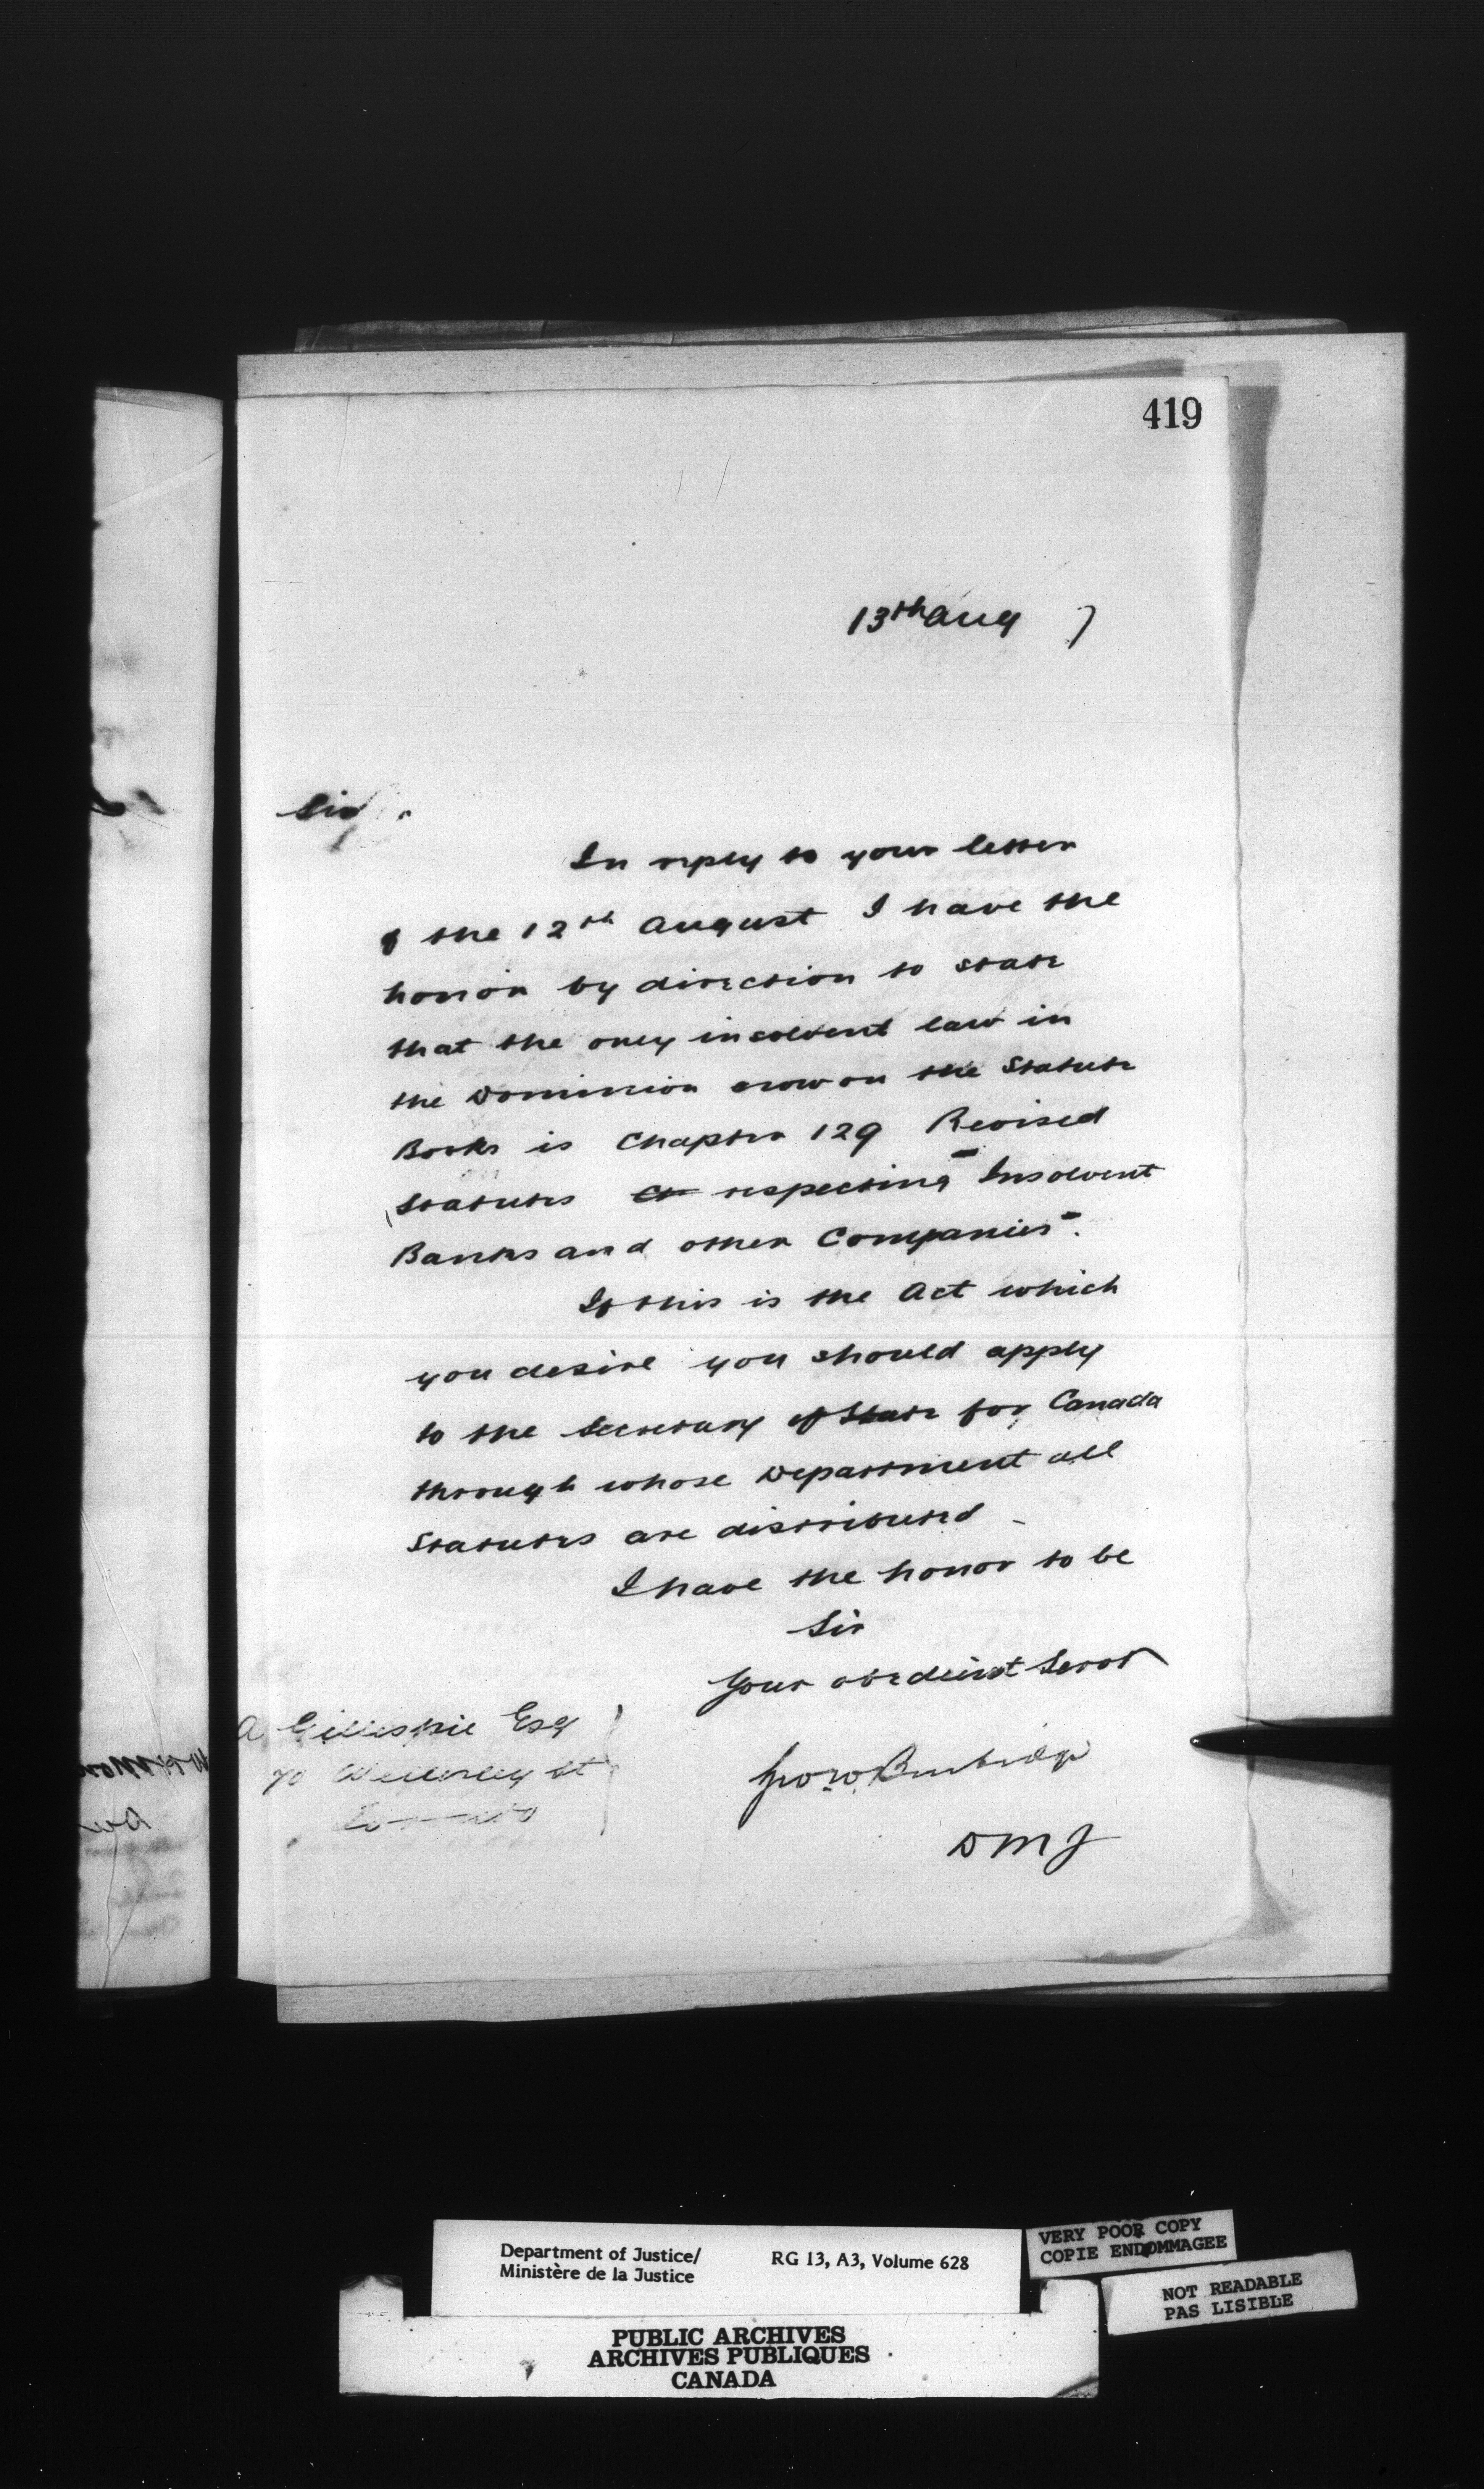 419
13th Aug 7
Sir
In reply to your letter
of the 12th August I have the
honor by direction to state
that the only insolvent law in
the Dominion now on the Statute
Books is Chapter 129 Revised
Statutes respecting "Insolvent
Banks and other Companies".
If this is the Act which
you desire you should apply
to the Secretary of State for Canada
through whose Department all
Statutes are distributed -
I have the honor to be
Sir
Your obedient Servt
A Gillespie Esq
70 Wellesley St
Toronto
Geo. W. Burbidge
D M J
Department of Justice/
Ministère de la Justice
RG 13, A3, Volume 628
PUBLIC ARCHIVES
ARCHIVES PUBLIQUES
CANADA
VERY POOR COPY
COPIE ENDOMMAGEE
NOT READABLE
PAS LISIBLE